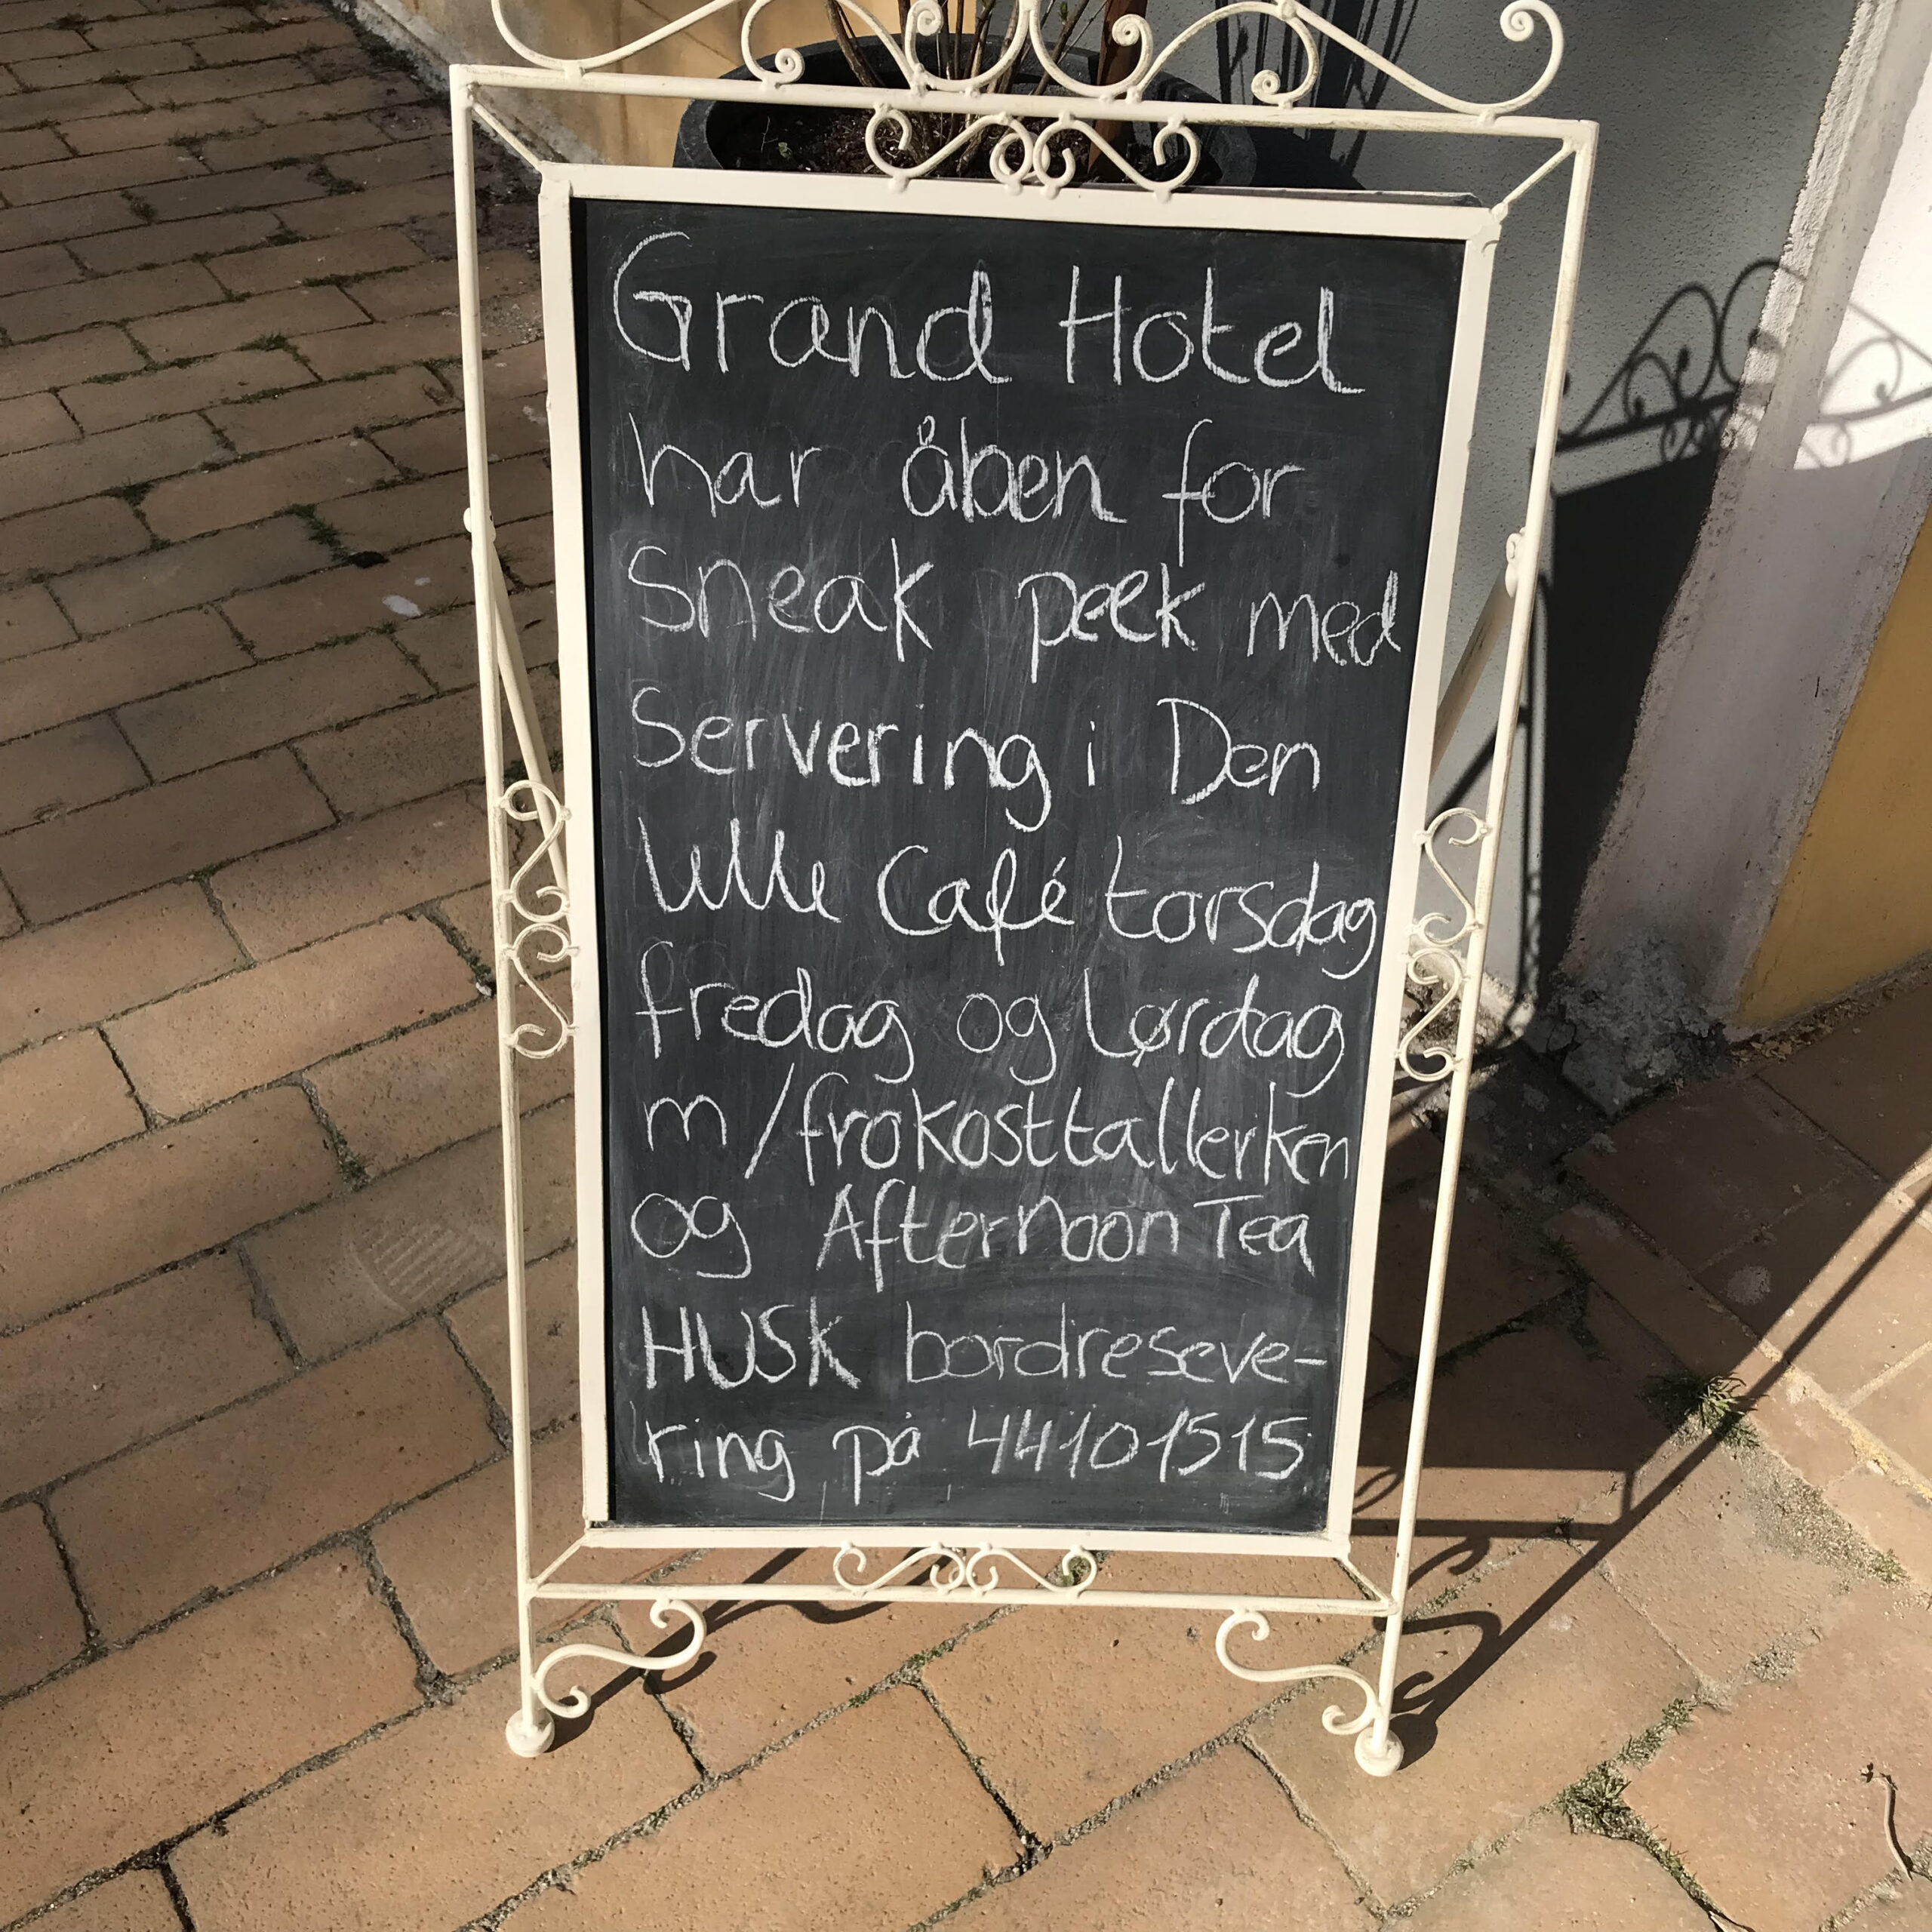 Grand Hotel
har åben for
Sneak peek med
Servering i Den
lille Café torsdag
fredag og Lørdag
m/frokosttallerken
og Afternoon Tea
HUSK bordreseve-
ring på 44101515